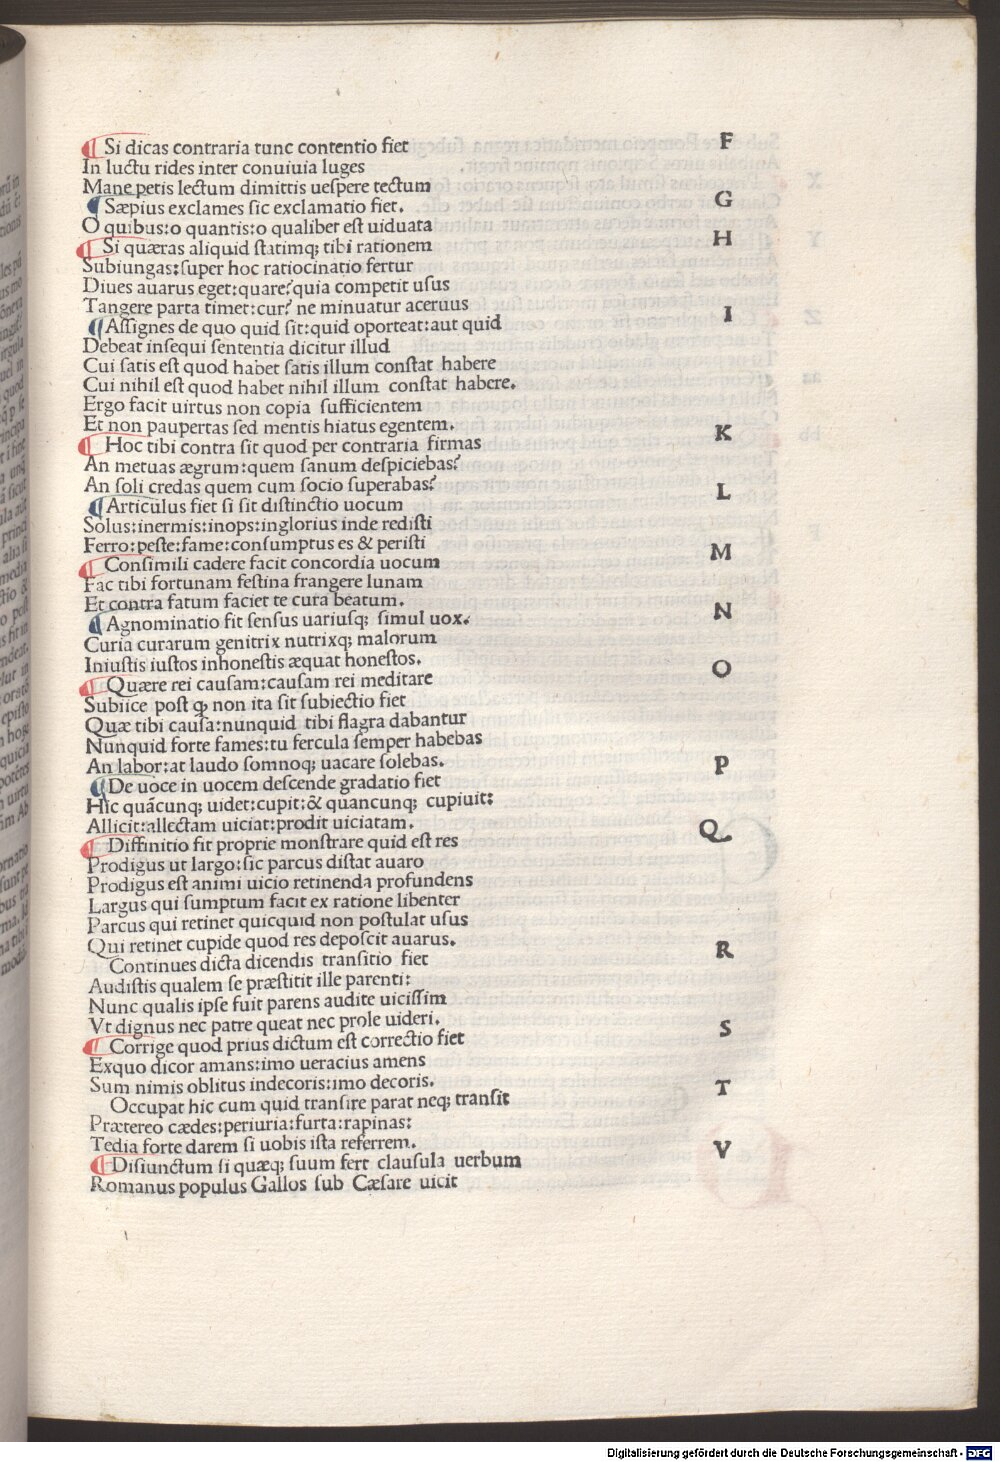 Si dicas contraria tunc contentio fiet F
In luctu rides inter conuiuia luges
Mane petis lectum dimittis uespere tectum
Sæpius exclames sic exclamatio fiet. G
O quibus:o quantis:o qualiber est uiduata
Si quæras aliquid statimq; tibi rationem H
Subiungas:super hoc ratiocinatio fertur
Diues auarus eget:quare?quia competit usus
Tangere parta timet:cur? ne minuatur aceruus
Assignes de quo quid sit:quid oporteat:aut quid I
Debeat insequi sententia dicitur illud
Cui satis est quod habet satis illum constat habere
Cui nihil est quod habet nihil illum constat habere.
Ergo facit uirtus non copia sufficientem
Et non paupertas sed mentis hiatus egentem.
Hoc tibi contra sit quod per contraria firmas K
An metuas ægrum:quem sanum despiciebas?
An soli credas quem cum socio superabas?
Articulus fiet si sit distinctio uocum L
Solus:inermis:inops:inglorius inde redisti
Ferro:peste:fame:consumptus es & peristi
Consimili cadere facit concordia uocum M
Fac tibi fortunam festina frangere lunam
Et contra fatum faciet te cura beatum.
Agnominatio fit sensus uariusq; simul uox. N
Curia curarum genitrix nutrixq; malorum
Iniustis iustos inhonestis æquat honestos.
Quære rei causam:causam rei meditare O
Subiice post ꝙ non ita sit subiectio fiet
Quæ tibi causa:nunquid tibi flagra dabantur
Nunquid forte fames:tu fercula semper habebas
An labor:at laudo somnoq; uacare solebas.
De uoce in uocem descende gradatio fiet P
Hic quãcunq; uidet:cupit:& quancunq; cupiuit:
Allicit:allectam uiciat:prodit uiciatam.
Diffinitio fit proprie monstrare quid est res Q
Prodigus ut largo:sic parcus distat auaro
Prodigus est animi uicio retinenda profundens
Largus qui sumptum facit ex ratione libenter
Parcus qui retinet quicquid non postulat usus
Qui retinet cupide quod res deposcit auarus.
Continues dicta dicendis transitio fiet R
Audistis qualem se præstitit ille parenti:
Nunc qualis ipse fuit parens audite uicissim
Vt dignus nec patre queat nec prole uideri.
Corrige quod prius dictum est correctio fiet S
Exquo dicor amans:imo ueracius amens
Sum nimis oblitus indecoris:imo decoris.
Occupat hic cum quid transire parat neq; transit T
Prætereo cædes:periuria:furta:rapinas:
Tedia forte darem si uobis ista referrem.
Disiunctum si quæq; suum fert clausula uerbum V
Romanus populus Gallos sub Cæsare uicit
Digitalisierung gefördert durch die Deutsche Forschungsgemeinschaft - DFG